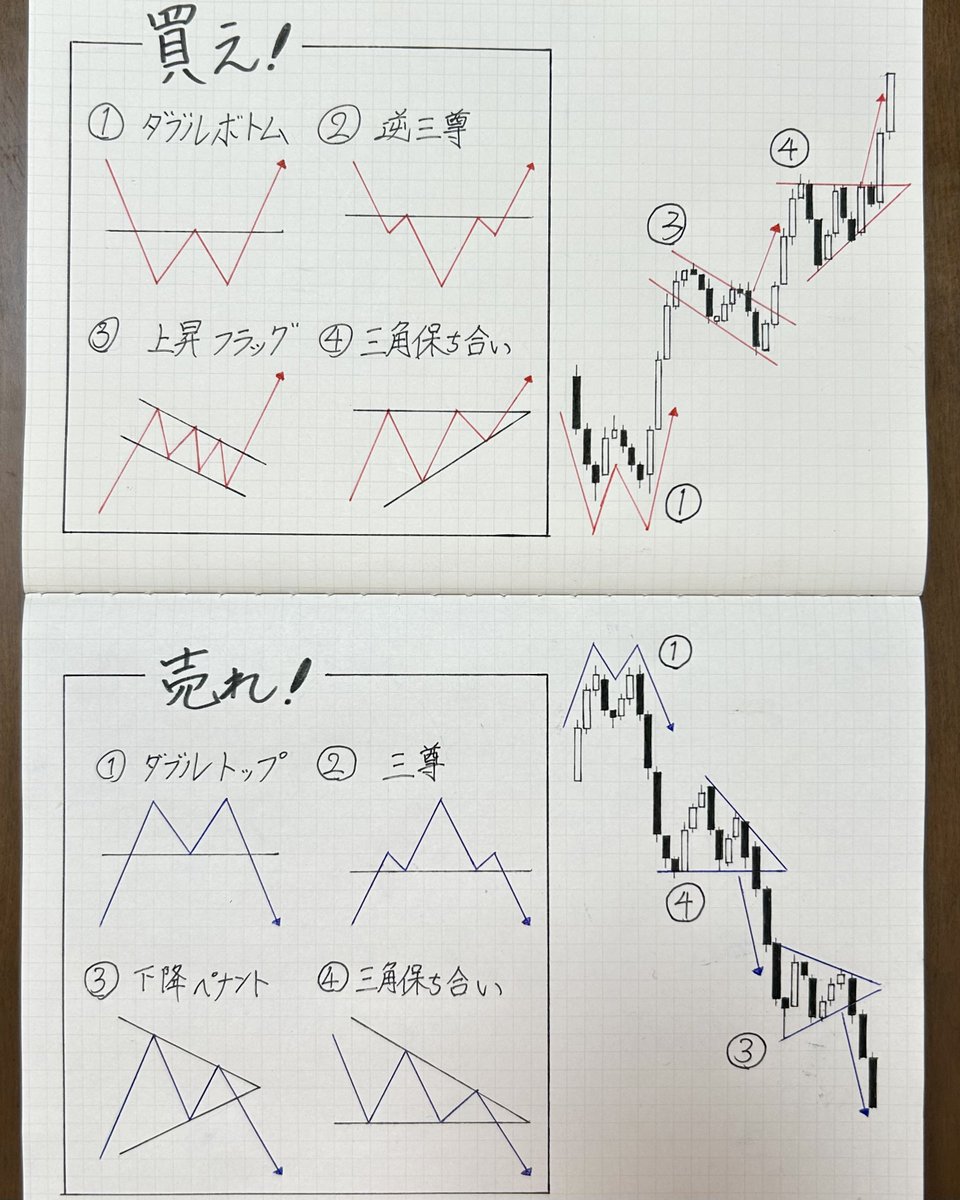 買え!
① ダブルボトム ② 逆三尊
③ 上昇フラッグ ④ 三角保ち合い
④
③
①
売れ!
① ダブルトップ ② 三尊
③ 下降ペナント ④ 三角保ち合い
①
④
③